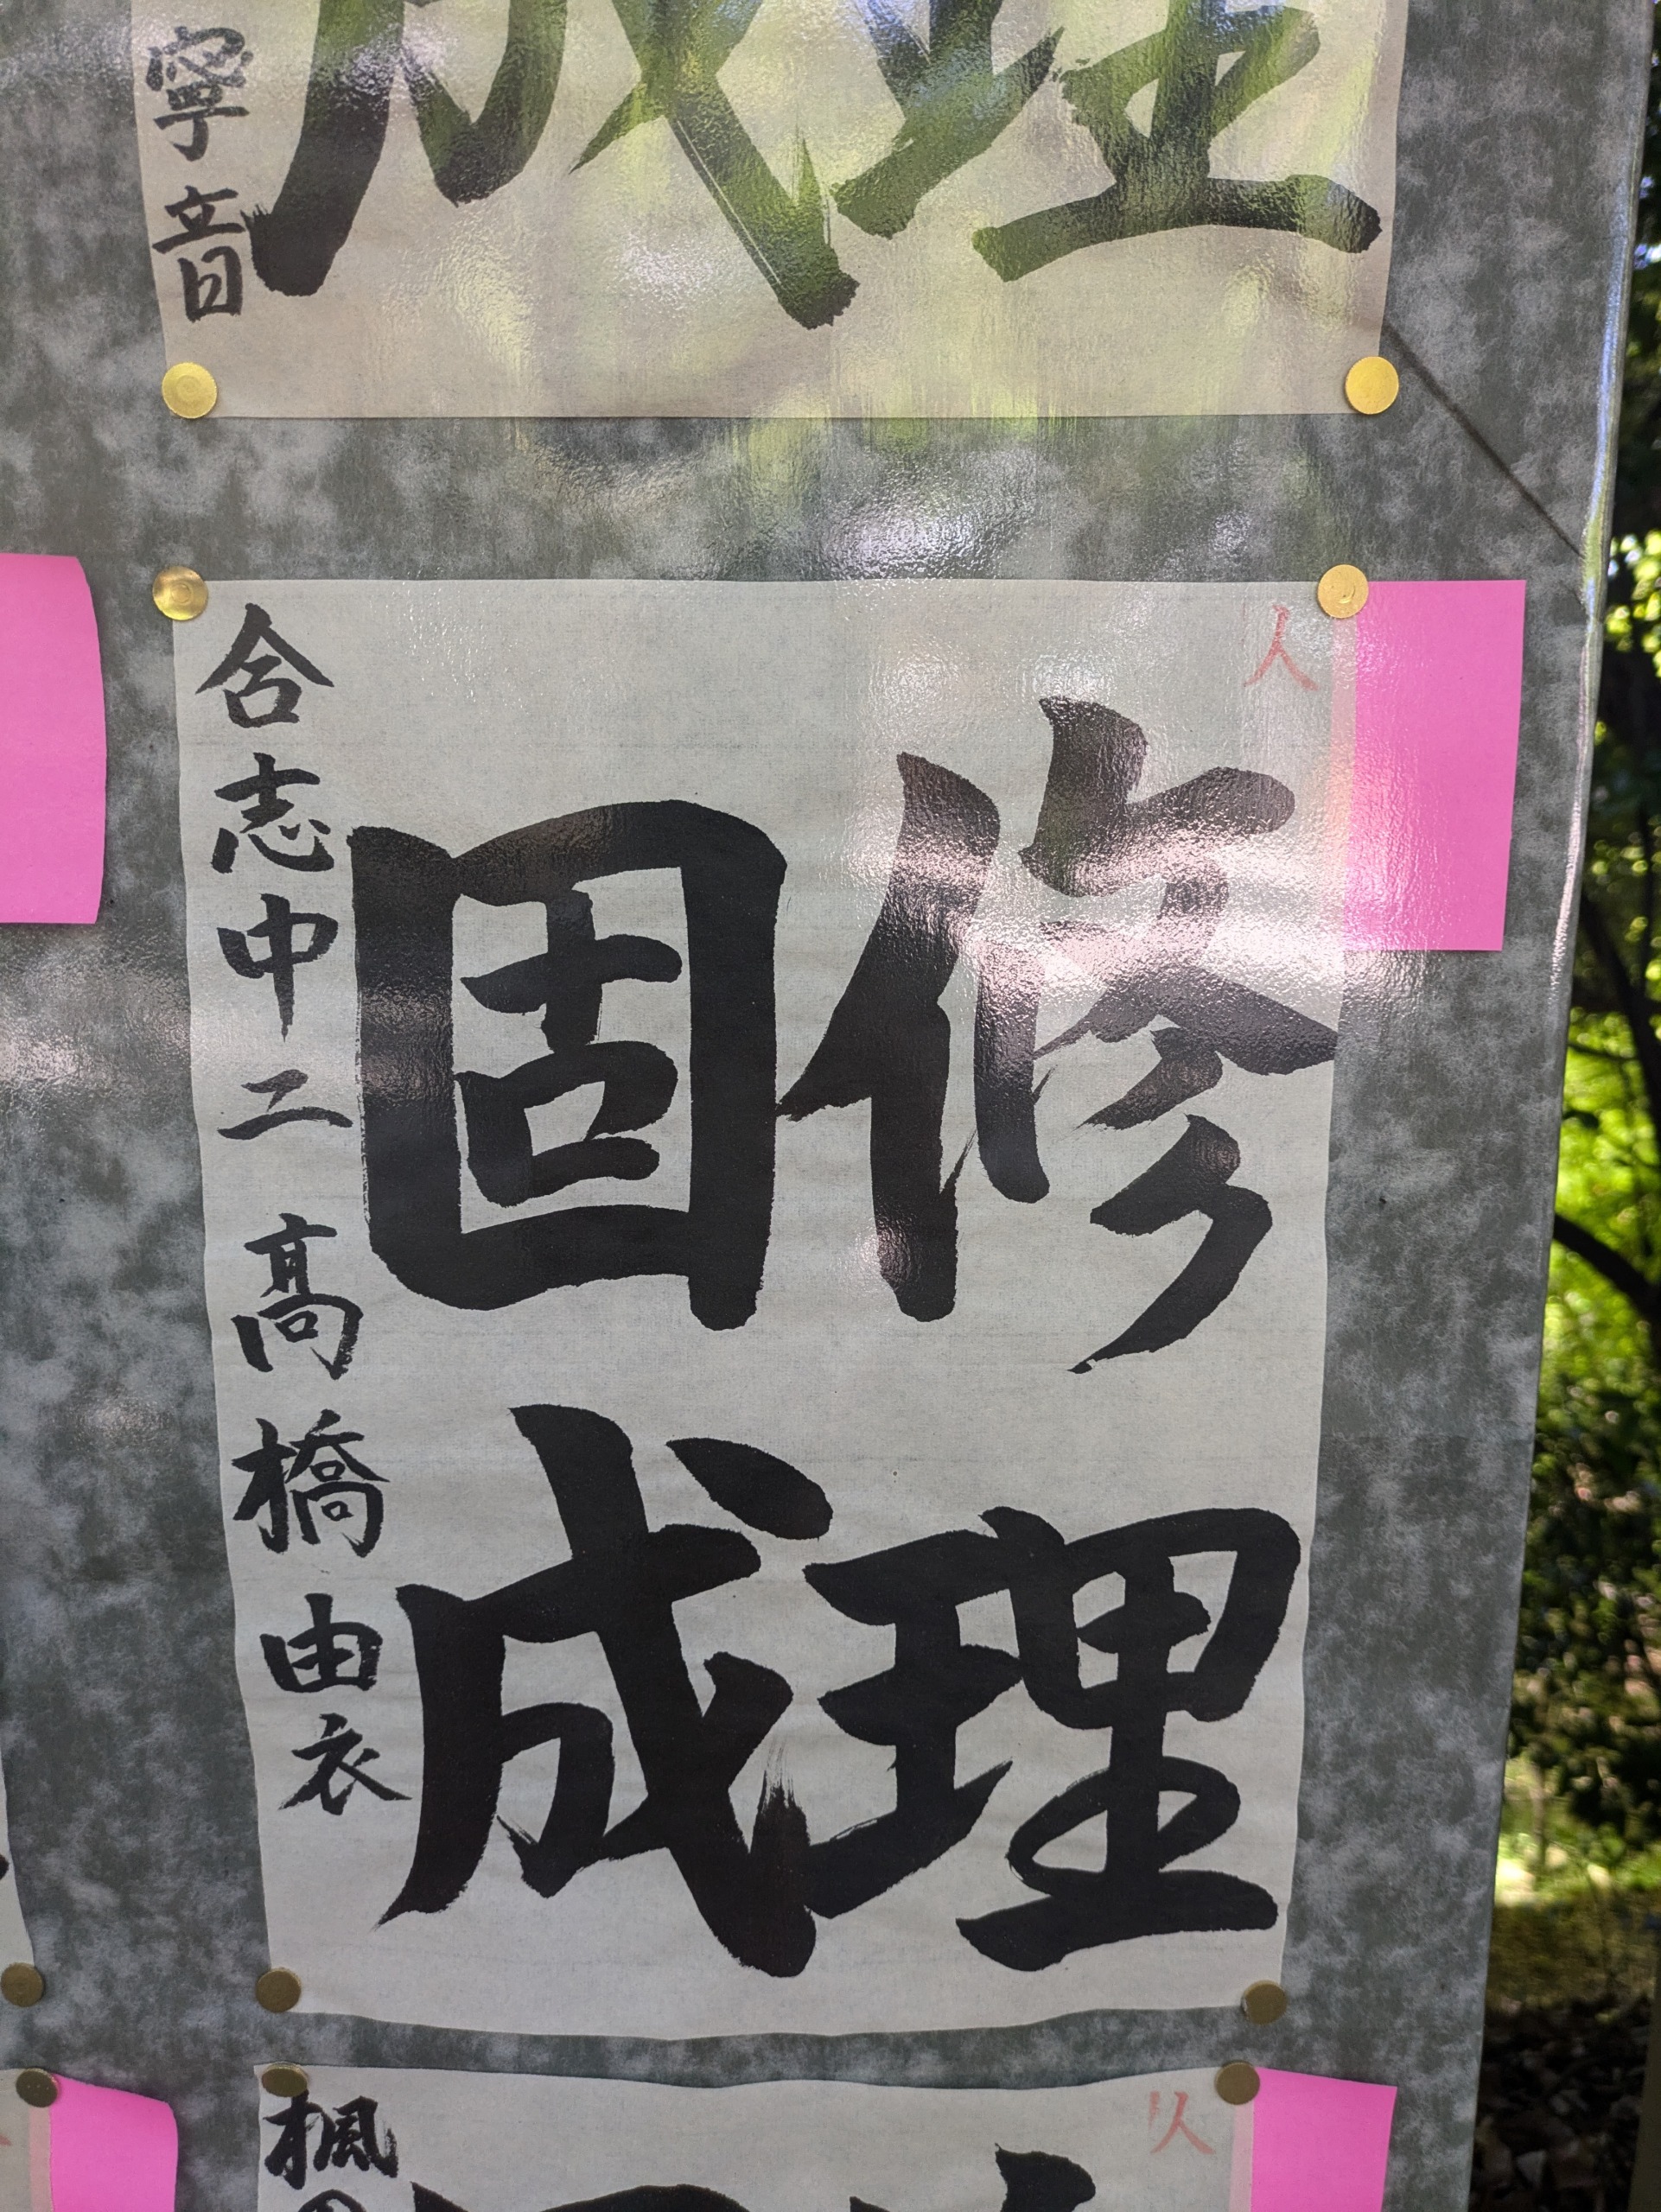 成理
寧音
人
修理
固成
合志中二 髙橋由衣
人
楓